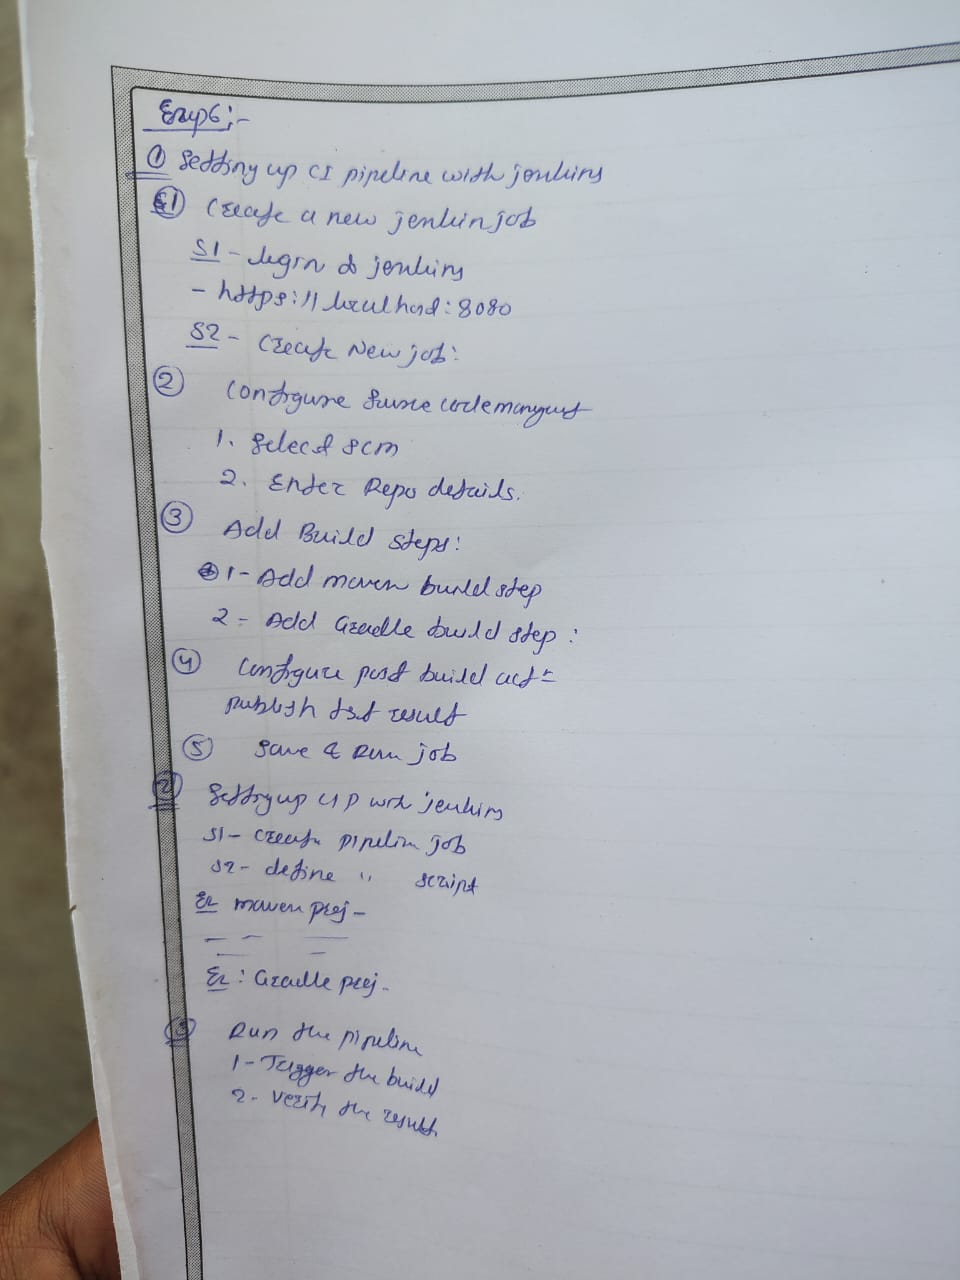 Exp6:-
① Setting up CI pipeline with jenkins
① Create a new jenkin job
S1 - login to jenkins
- https://localhost:8080
S2 - Create New job:
② Configure Source code
1. Select SCM
2. Enter Repo details.
③ Add Build steps:
1 - Add maven build step
2 - Add Gradle build step:
④ Configure post build act
publish tst result
⑤ Save & Run job
② Setting up with jenkins
S1 - Create pipeline job
S2 - define " script
Ex maven proj -
Ex: Gradle proj -
③ Run the pipeline
1 - Trigger the build
2 - Verify the result